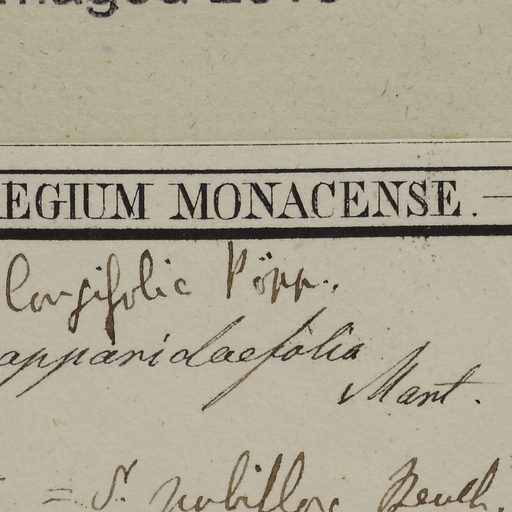 EGIUM MONACENSE.
longifolia Pöpp.
apparidaefolia
Mart.
= S. nobiflora Benth.